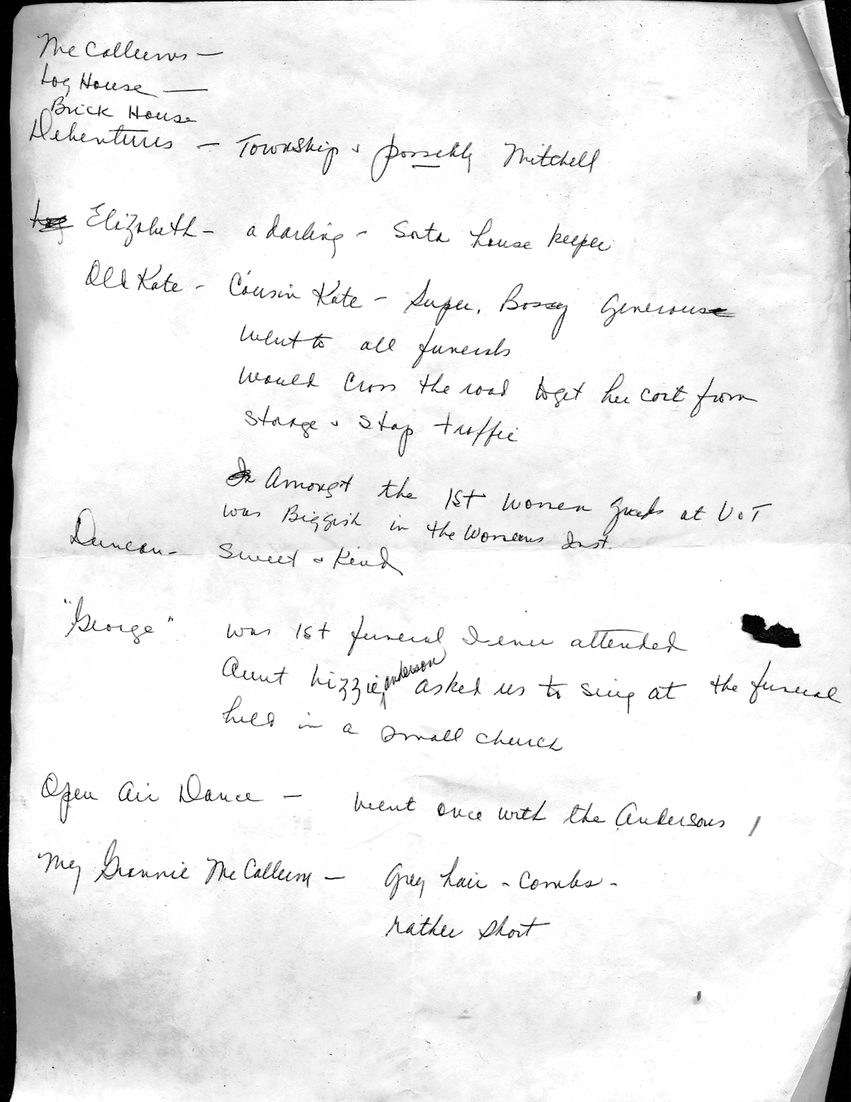 McCallums —
Log House —
Brick House
Debentures — Township & possibly Mitchell
Elizabeth - a darling - Sorta house keeper
Old Kate - Cousin Kate - Super, Bossy Generous
Went to all funerals
Would Cross the road to get her coat from
Storage & Stop traffic
Amongst the 1st Women grads at U of T
was Biggish in the Womens Inst.
Duncan - Sweet & Kind
"George" was 1st funeral I ever attended
Aunt Lizzie Anderson asked us to sing at the funeral
held in a small church
Open Air Dance — Went once with the Andersons
My Grannie McCallum — Grey hair - Combs -
rather short